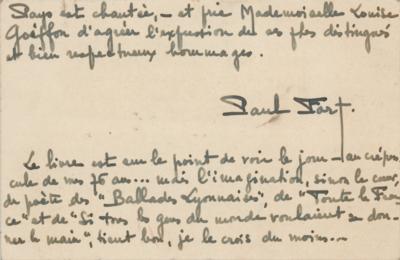 Pays est chantée, – et prie Mademoiselle Louise
Goëffon d'agréer l'expression de ses plus distingués
et bien respectueux hommages.
Paul Fort.
Le livre est sur le point de voir le jour – au crépus-
cule de mes 76 ans... mais l'imagination, sinon le cœur,
du poète des "Ballades Lyonnaises", de "Toute la Fran-
ce" et de "Si tous les gens du monde voulaient se don-
ner la main", tient bon, je le crois du moins...